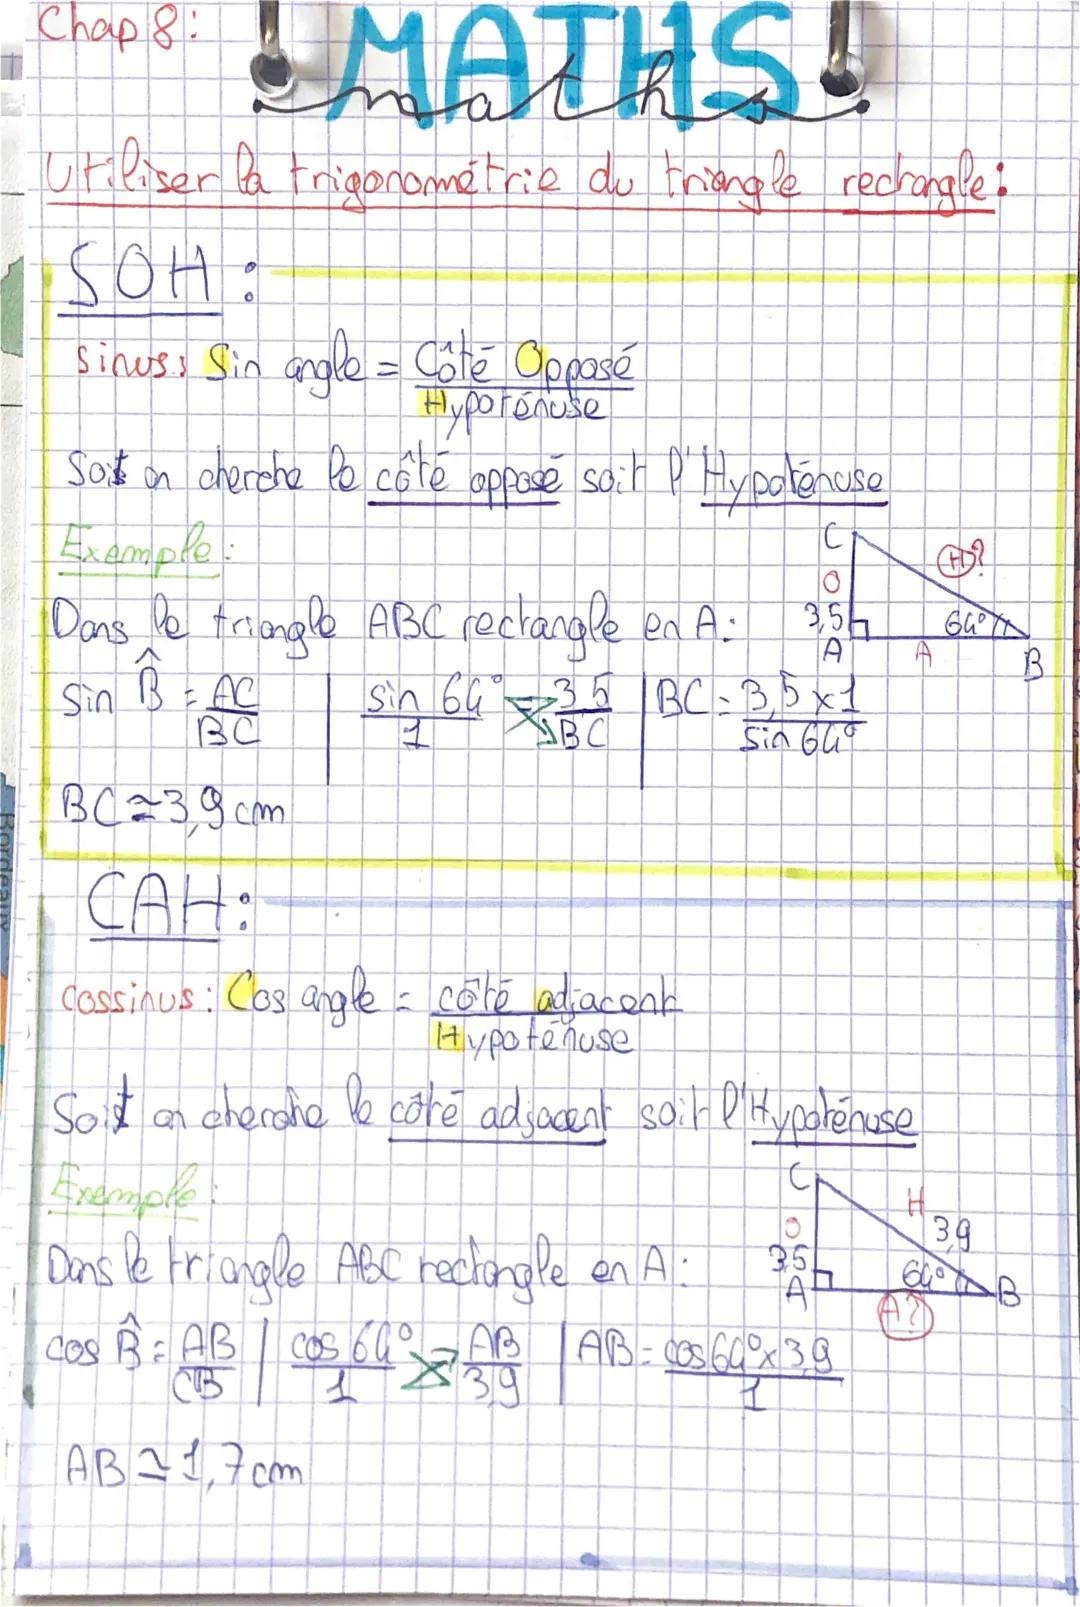 Chap 8:
MATHS
maths
Utiliser la trigonométrie du triangle rectangle:
SOH:
sinus: Sin angle = Côté Opposé
Hypoténuse
Soit on cherche le côté opposé soit l'Hypoténuse
Exemple:
C
H?
O
3,5
64°
A
A
B
Dans le triangle ABC rectangle en A:
sin B̂ = AC
BC
sin 64° = 3,5
1 BC
BC = 3,5 x 1
sin 64°
BC ≃ 3,9 cm
CAH:
cossinus: Cos angle = côté adjacent
Hypoténuse
Soit on cherche le côté adjacent soit l'Hypoténuse
Exemple:
C
H
3,9
O
3,5
64°
A
B
A?
Dans le triangle ABC rectangle en A:
cos B̂ = AB
CB
cos 64° = AB
1 3,9
AB = cos 64° x 3,9
1
AB ≃ 1,7 cm
Bordeaux